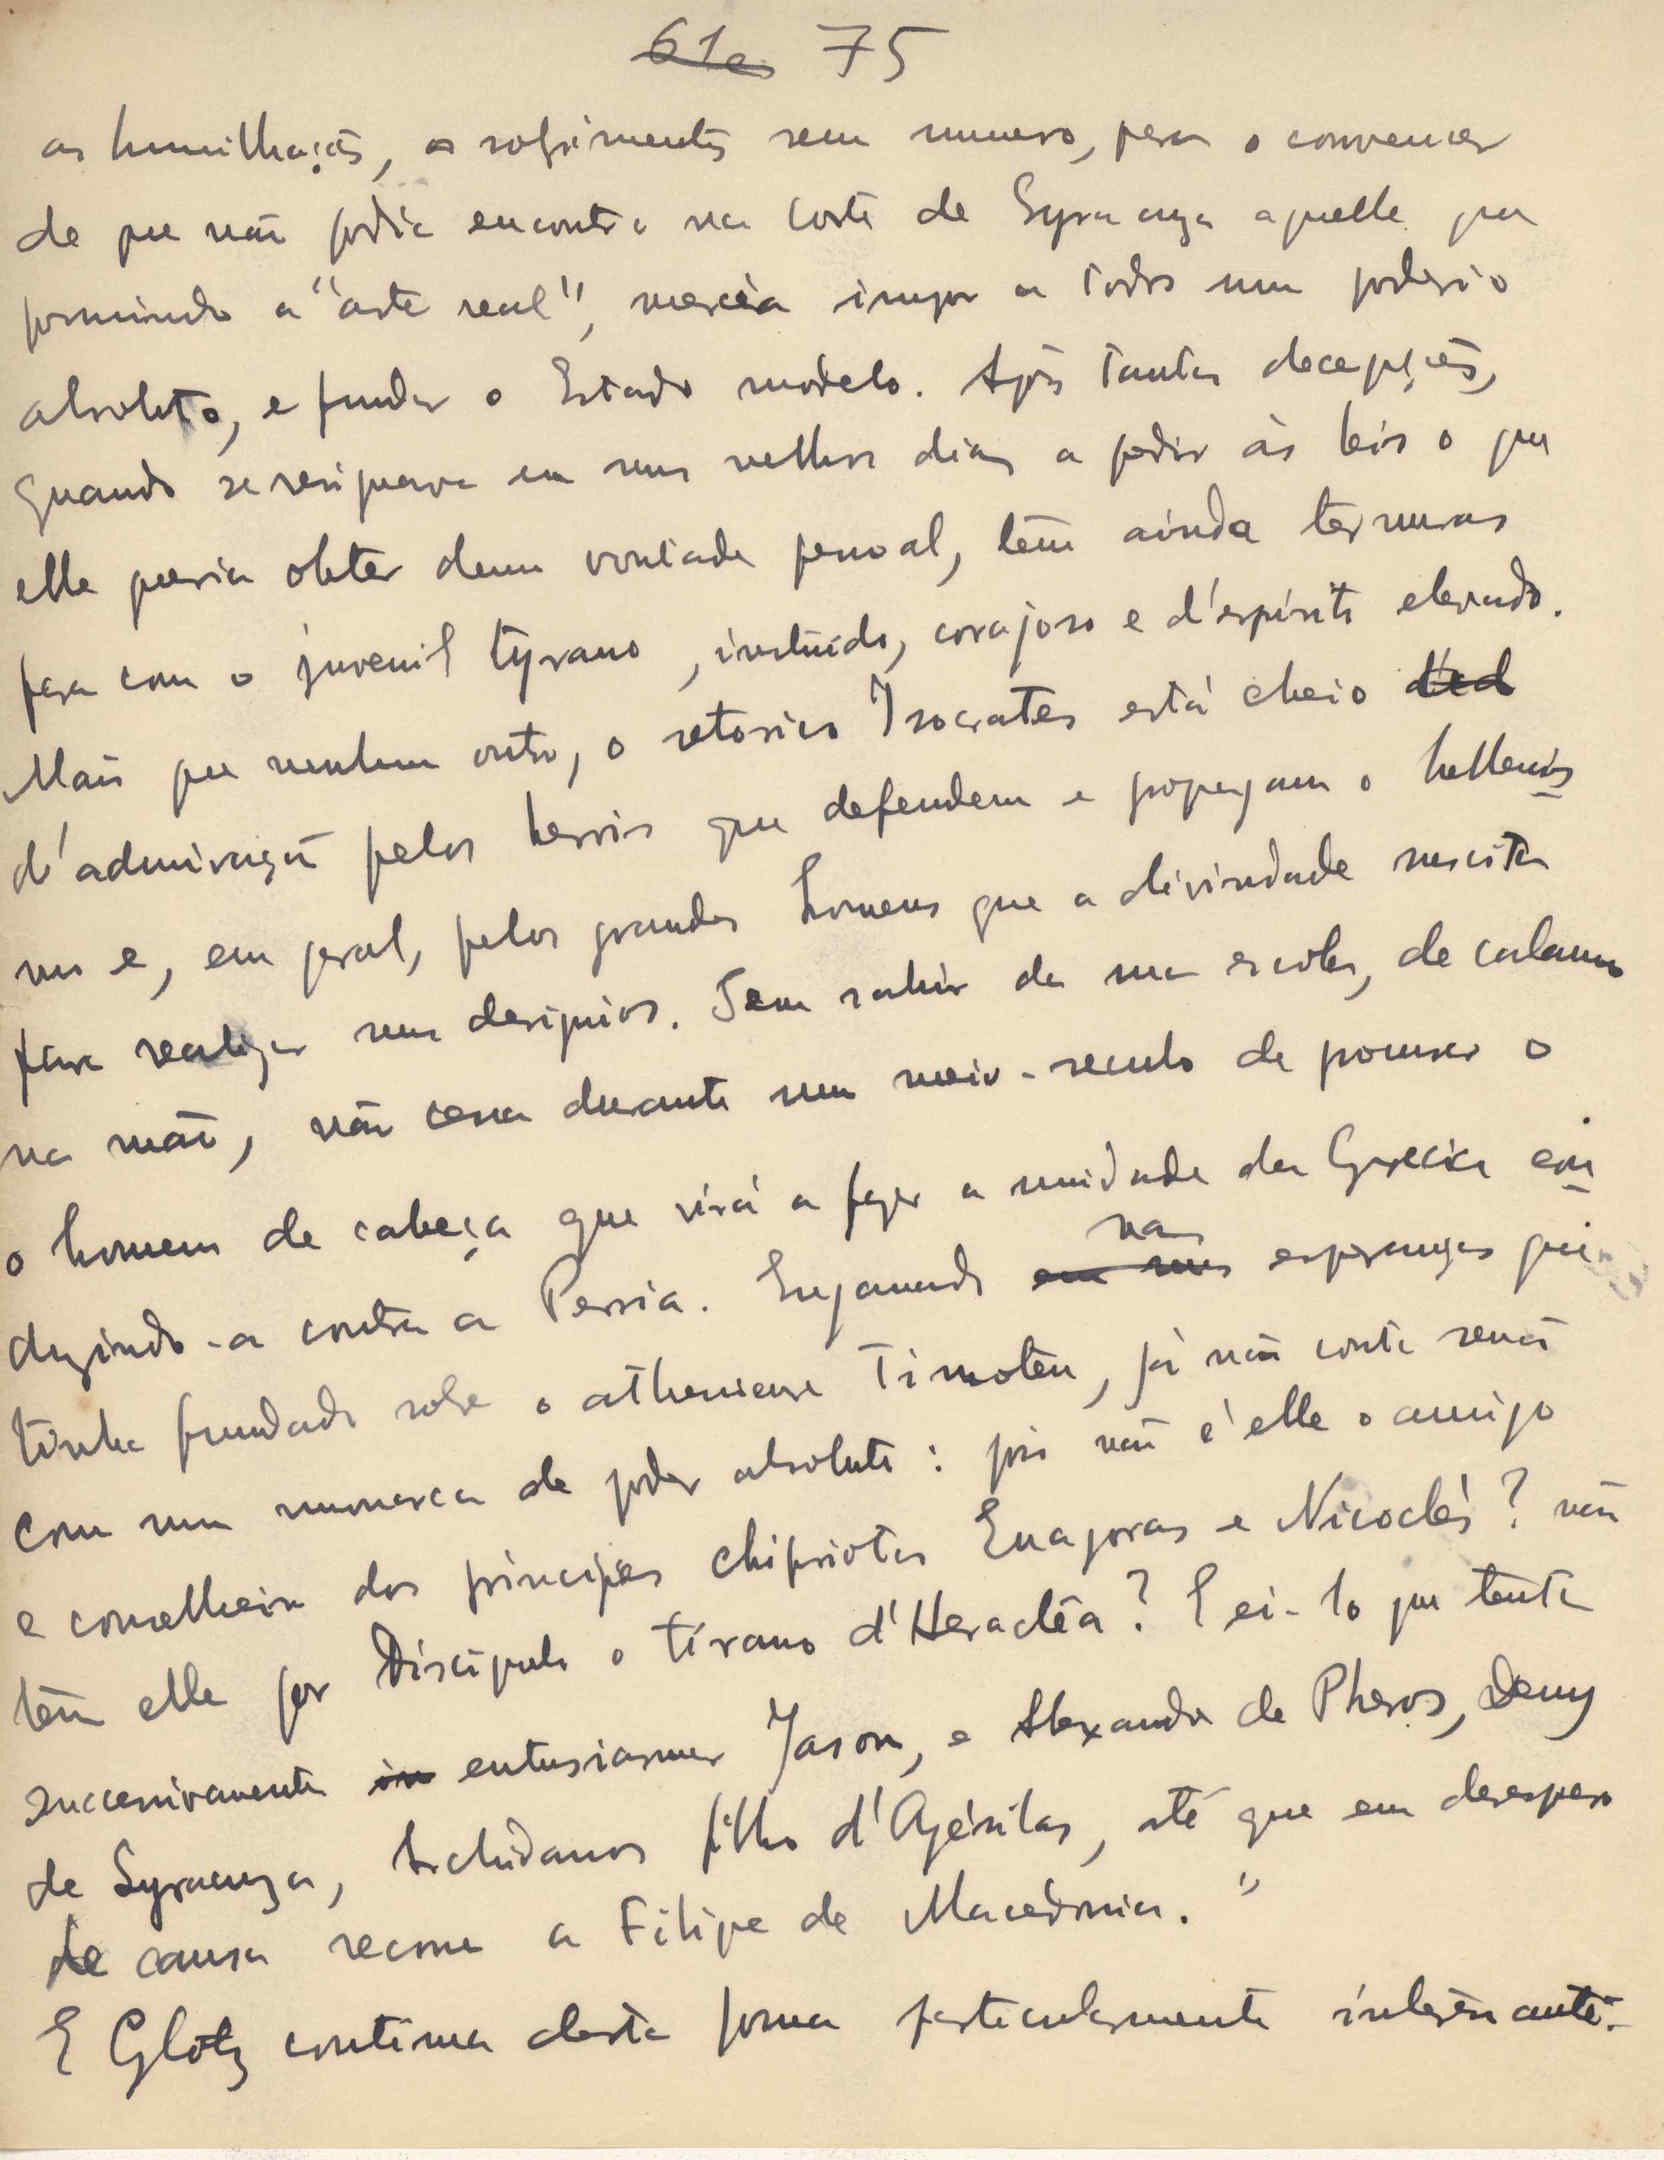 61a 75
as humilhações, os sofrimentos sem numero, para o convencer
de que não podia encontrar na corte de Syracuza aquelle que
possuindo a "arte real", merecia impor a todos um poderio
absoluto, e fundar o Estado modelo. Após tantas decepções,
quando se resignava em seus velhos dias a pedir às leis o que
elle queria obter duma vontade pessoal, têm ainda ternuras
para com o juvenil tyrano, instruido, corajoso e d'espirito elevado.
Mais que nenhum outro, o retorico Isocrates está cheio ded
d'admiração pelos heróis que defendem e propagam o hellenis
mo e, em geral, pelos grandes homens que a divindade suscita
para realizar seus designios. Sem sahir da sua escola, de calamo
na mão, não cessa durante um meio-seculo de procurar o
o homem de cabeça que virá a fazer a unidade da Grecia con
duzindo-a contra a Persia. Enganado em suas nas esperanças que
tinha fundado sobre o atheniense Timoteu, já não conta senão
com um monarca de poder absoluto: pois não é elle o amigo
e conselheiro dos principes chipriotas Evagoras e Nicoclés? não
têm elle por Discipulo o tirano d'Heracléa? E ei-lo que tenta
successivamente in entusiasmar Jason, e Alexandre de Pheros, Deny
de Syracuza, Archidamos filho d'Agésilas, até que em desespero
de causa recorre a Filipe de Macedonia."
E Glotz continua desta forma particularmente interessante: